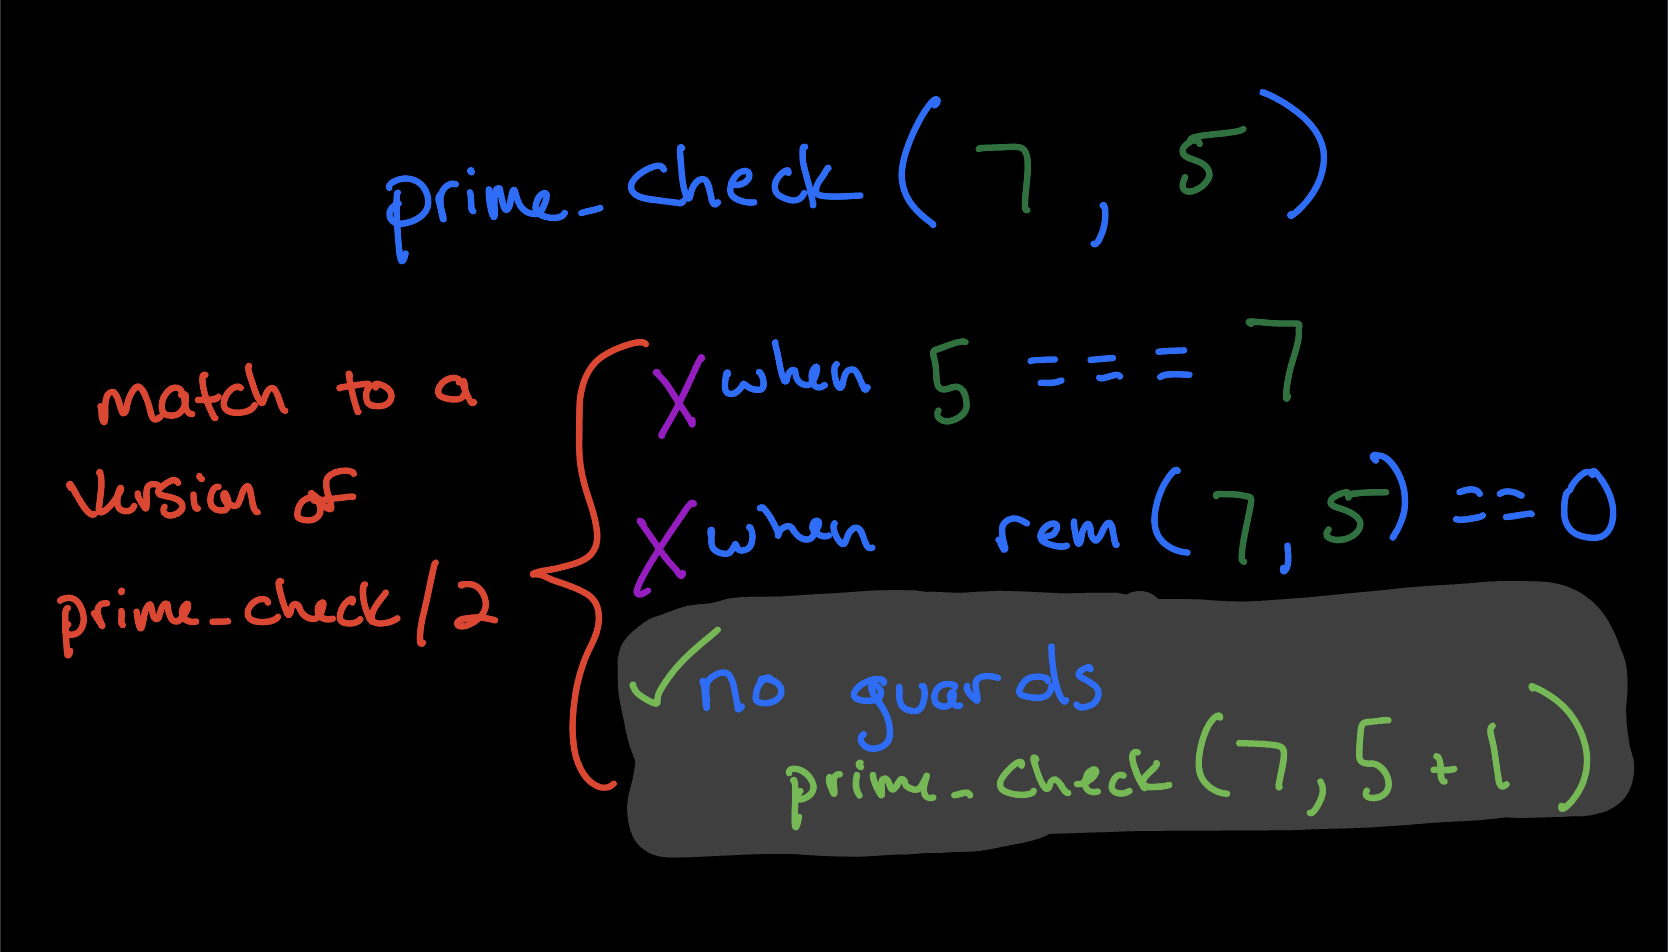 prime_check(7, 5)
match to a
version of
prime_check/2
X when 5 === 7
X when rem(7, 5) == 0
✓ no guards
prime_check(7, 5+1)